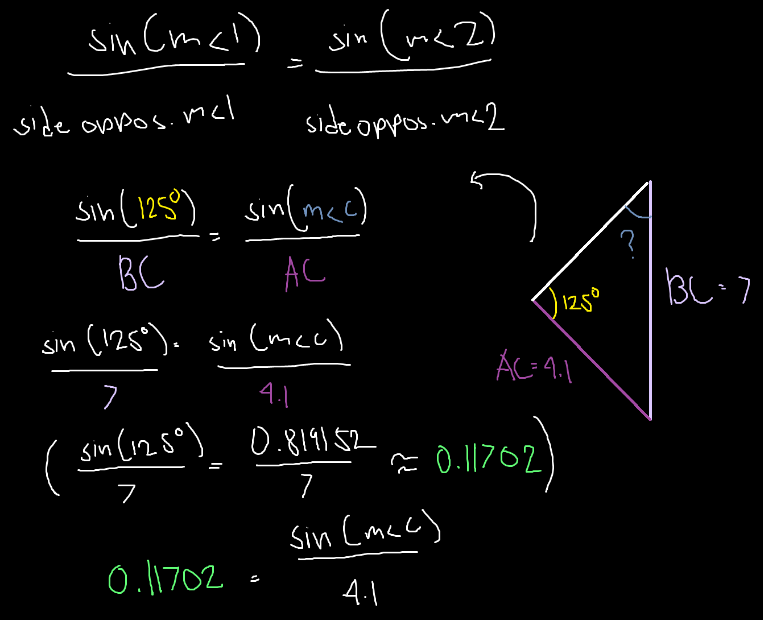 sin(m<1) = sin(m<2)
side oppos. m<1 side oppos. m<2
sin(125°) = sin(m<C)
BC AC
sin(125°) = sin(m<C)
7 4.1
(sin(125°) = 0.819152 ≈ 0.11702)
7 7
0.11702 = sin(m<C)
4.1
?
125°
BC = 7
AC = 4.1